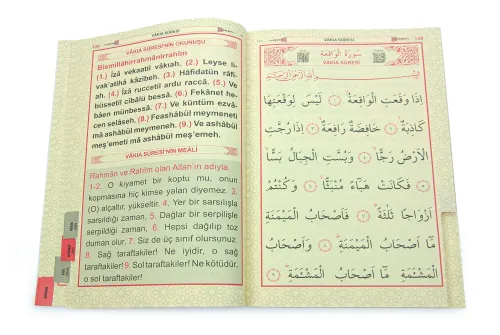 VÂKIA SÛRESİ
VÂKIA SÛRESİ'NİN OKUNUŞU
Bismillâhirrahmânirrahîm
(1.) İzâ vekaatil vâkıah. (2.) Leyse li
vak'atihâ kâzibeh. (3.) Hâfidatün râfi-
ah. (4.) İzâ ruccetil ardu raccâ. (5.) Ve
büssetil cibâlü bessâ. (6.) Fekânet he-
bâen münbessâ. (7.) Ve küntüm ezvâ-
cen selâseh. (8.) Feashâbül meymeneti
mâ ashâbül meymeneh. (9.) Ve ashâbül
meş'emeti mâ ashâbül meş'emeh.
VÂKIA SÛRESİ'NİN MEÂLİ
Rahmân ve Rahîm olan Allah'ın adıyla.
1-2. O kıyamet bir koptu mu, onun
kopmasına hiç kimse yalan diyemez. 3.
(O) alçaltır, yükseltir. 4. Yer bir sarsılışla
sarsıldığı zaman, 5. Dağlar bir serpilişle
serpildiği zaman, 6. Hepsi dağılıp toz
duman olur. 7. Siz de üç sınıf olursunuz.
8. Sağ taraftakiler! Ne iyidir, o sağ
taraftakiler! 9. Sol taraftakiler! Ne kötüdür,
o sol taraftakiler!
VÂKIA SÛRESİ
سُورَةُ الْوَاقِعَةِ
VÂKIA SÛRESİ
بِسْمِ اللّٰهِ الرَّحْمٰنِ الرَّحِيمِ
اِذَا وَقَعَتِ الْوَاقِعَةُ ﴿١﴾ لَيْسَ لِوَقْعَتِهَا
كَاذِبَةٌ ﴿٢﴾ خَافِضَةٌ رَافِعَةٌ ﴿٣﴾ اِذَا رُجَّتِ
الْاَرْضُ رَجًّا ﴿٤﴾ وَبُسَّتِ الْجِبَالُ بَسًّا
﴿٥﴾ فَكَانَتْ هَبَاءً مُنْبَثًّا ﴿٦﴾ وَكُنْتُمْ
اَزْوَاجًا ثَلٰثَةً ﴿٧﴾ فَاَصْحَابُ الْمَيْمَنَةِ
مَا اَصْحَابُ الْمَيْمَنَةِ ﴿٨﴾ وَاَصْحَابُ
الْمَشْئَمَةِ مَا اَصْحَابُ الْمَشْئَمَةِ ﴿٩﴾